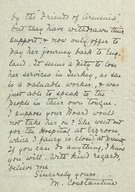 by the "Friends of Armenia",
but they have withdrawn their
support, & now only offer to
pay her journey back to Eng-
land. It seems a pity to lose
her services in Turkey, as she
is a valuable worker, & was
just able to speak to the
people in their own tongue.
I suppose your Board would
not take her on? She went out
for the Hospital at
which I fancy is closed at present
If you can do anything, I know
you will. With kind regards,
believe me
Sincerely yours
M. Constantine